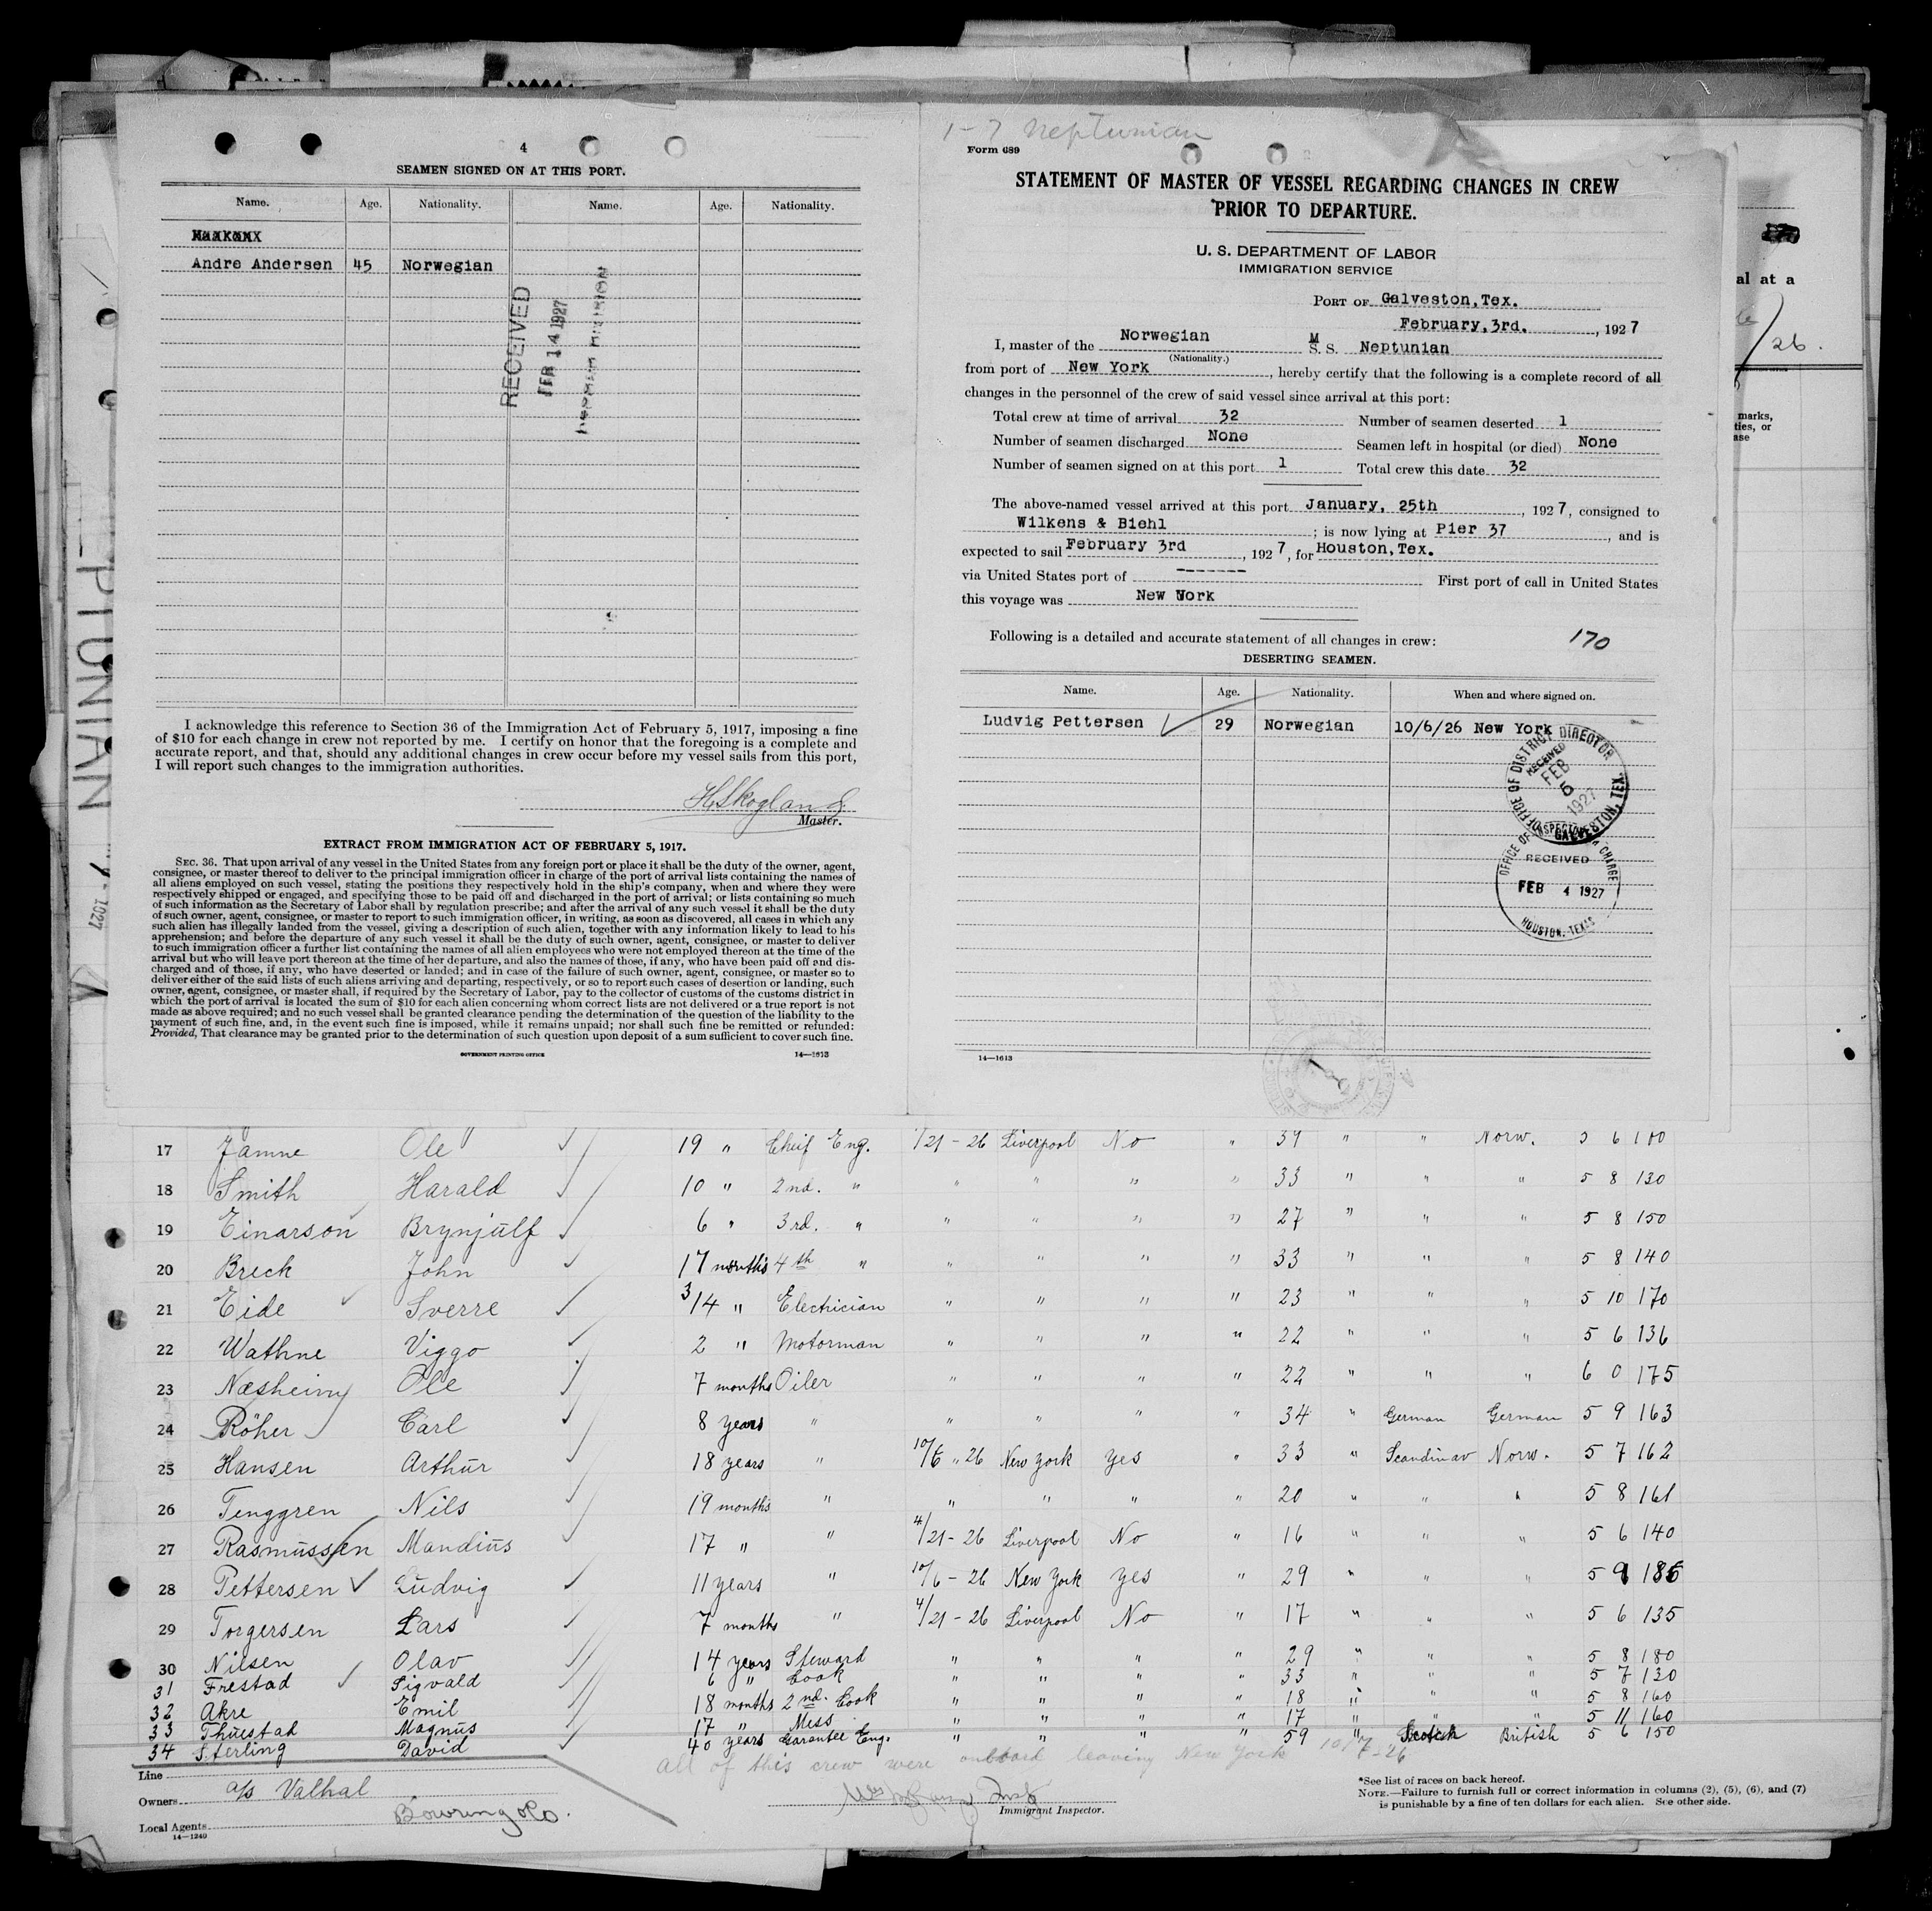 4
SEAMEN SIGNED ON AT THIS PORT.
Name. Age. Nationality. Name. Age. Nationality.
Andre Andersen 45 Norwegian
RECEIVED
FEB 14 1927
I acknowledge this reference to Section 36 of the Immigration Act of February 5, 1917, imposing a fine
of $10 for each change in crew not reported by me. I certify on honor that the foregoing is a complete and
accurate report, and that, should any additional changes in crew occur before my vessel sails from this port,
I will report such changes to the immigration authorities.
H Skogland
Master.
EXTRACT FROM IMMIGRATION ACT OF FEBRUARY 5, 1917.
SEC. 36. That upon arrival of any vessel in the United States from any foreign port or place it shall be the duty of the owner, agent,
consignee, or master thereof to deliver to the principal immigration officer in charge of the port of arrival lists containing the names of
all aliens employed on such vessel, stating the positions they respectively hold in the ship's company, when and where they were
respectively shipped or engaged, and specifying those to be paid off and discharged in the port of arrival; or lists containing so much
of such information as the Secretary of Labor shall by regulation prescribe; and after the arrival of any such vessel it shall be the duty
of such owner, agent, consignee, or master to report to such immigration officer, in writing, as soon as discovered, all cases in which any
such alien has illegally landed from the vessel, giving a description of such alien, together with any information likely to lead to his
apprehension; and before the departure of any such vessel it shall be the duty of such owner, agent, consignee, or master to deliver
to such immigration officer a further list containing the names of all alien employees who were not employed thereon at the time of the
arrival but who will leave port thereon at the time of her departure, and also the names of those, if any, who have been paid off and dis-
charged and of those, if any, who have deserted or landed; and in case of the failure of such owner, agent, consignee, or master so to
deliver either of the said lists of such aliens arriving and departing, respectively, or so to report such cases of desertion or landing, such
owner, agent, consignee, or master shall, if required by the Secretary of Labor, pay to the collector of customs of the customs district in
which the port of arrival is located the sum of $10 for each alien concerning whom correct lists are not delivered or a true report is not
made as above required; and no such vessel shall be granted clearance pending the determination of the question of the liability to the
payment of such fine, and, in the event such fine is imposed, while it remains unpaid; nor shall such fine be remitted or refunded:
Provided, That clearance may be granted prior to the determination of such question upon deposit of a sum sufficient to cover such fine.
GOVERNMENT PRINTING OFFICE 14—1613
1-7 Neptunian
Form 689
STATEMENT OF MASTER OF VESSEL REGARDING CHANGES IN CREW
PRIOR TO DEPARTURE.
U. S. DEPARTMENT OF LABOR
IMMIGRATION SERVICE
PORT OF Galveston,Tex.
February,3rd. , 1927
I, master of the Norwegian M S. S. Neptunian
(Nationality.)
from port of New York , hereby certify that the following is a complete record of all
changes in the personnel of the crew of said vessel since arrival at this port:
Total crew at time of arrival 32 Number of seamen deserted 1
Number of seamen discharged None Seamen left in hospital (or died) None
Number of seamen signed on at this port 1 Total crew this date 32
The above-named vessel arrived at this port January, 25th , 1927, consigned to
Wilkens & Biehl ; is now lying at Pier 37 , and is
expected to sail February 3rd , 1927, for Houston,Tex.
via United States port of ------- First port of call in United States
this voyage was New York
Following is a detailed and accurate statement of all changes in crew: 170
DESERTING SEAMEN.
Name. Age. Nationality. When and where signed on.
Ludvig Pettersen 29 Norwegian 10/6/26 New York
OFFICE OF DISTRICT DIRECTOR
RECEIVED
FEB 5 1927
GALVESTON, TEX.
OFFICE OF INSPECTOR IN CHARGE
RECEIVED
FEB 4 1927
HOUSTON, TEXAS
14—1613
al at a
26.
marks,
ties, or
ase
PTUNIAN
1927
17 Jamne Ole 19 " Chief Eng. 4/21-26 Liverpool No " 39 " " Norw. 5 6 180
18 Smith Harald 10 " 2nd. " " " " " 33 " " " 5 8 130
19 Einarson Brynjulf 6 " 3rd. " " " " " 27 " " " 5 8 150
20 Breck John 17 months 4th " " " " " 33 " " " 5 8 140
21 Eide Sverre 3/4 " Electrician " " " " 23 " " " 5 10 170
22 Wathne Viggo 2 " Motorman " " " " 22 " " " 5 6 136
23 Næsheim Ole 7 months Oiler " " " " 22 " " " 6 0 175
24 Röher Carl 8 years " " " " " 34 " German German 5 9 163
25 Hansen Arthur 18 years " 10/6 " 26 New York yes " 33 " Scandinav Norw. 5 7 162
26 Tenggren Nils 19 months " " " " " 20 " " " 5 8 161
27 Rasmussen Mandius 17 " " 4/21-26 Liverpool No " 16 " " " 5 6 140
28 Pettersen Ludvig 11 years " 10/6-26 New York yes " 29 " " " 5 9 186
29 Torgersen Lars 7 months " 4/21-26 Liverpool No " 17 " " " 5 6 135
30 Nilsen Olav 14 years Steward " " " " 29 " " " 5 8 180
31 Frestad Sigvald 6 " Cook " " " " 33 " " " 5 7 130
32 Akre Emil 18 months 2nd. Cook " " " " 18 " " " 5 8 160
33 Thuestad Magnus 17 " Mess " " " " 17 " " " 5 11 160
34 Sterling David 40 years Garantee Eng. " " " " 59 " Scotch British 5 6 150
All of this crew were onboard leaving New York 10/7-26
Line
Owners a/s Valhal
Local Agents Bowring & Co.
14—1240
Immigrant Inspector.
*See list of races on back hereof.
NOTE.—Failure to furnish full or correct information in columns (2), (5), (6), and (7)
is punishable by a fine of ten dollars for each alien. See other side.